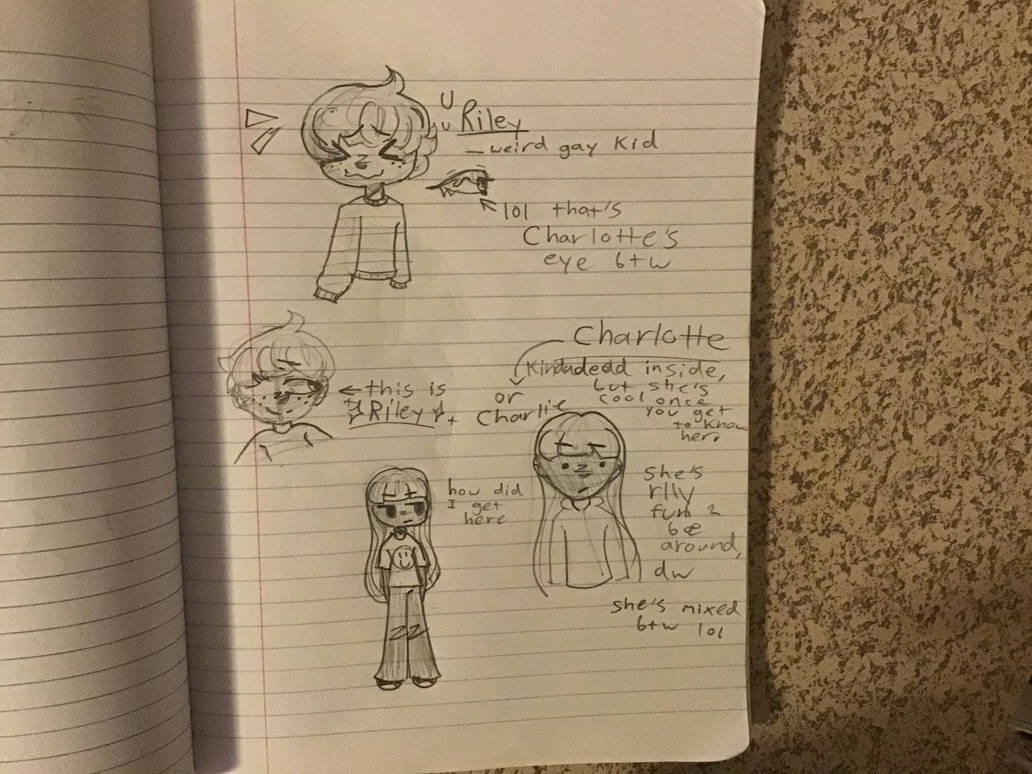 Riley
– weird gay kid
lol that's
Charlotte's
eye btw
Charlotte
Kindadead inside,
but she's
cool once
you get
to know
her.
or
Charlie
this is
Riley
how did
I get
here
she's
rlly
fun 2
be
around,
dw
she's mixed
btw lol